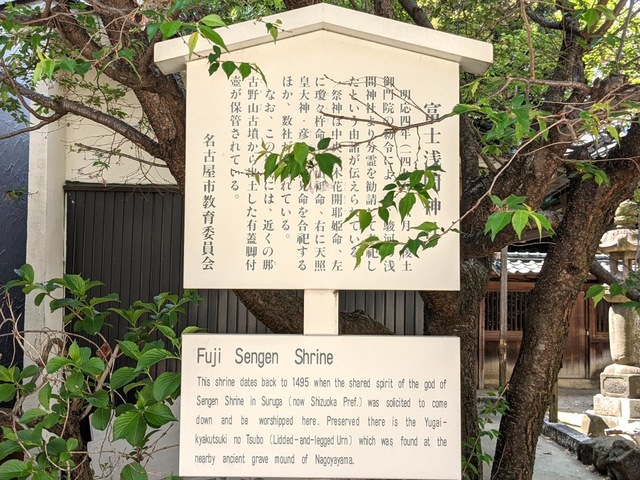 富士浅間神
明応四年(一四
御門院の勅令に 駿河 浅
間神社より分霊を勧請 祀し
たという由諸が伝えられている
祭神は中央 木花開耶姫命、左
に瓊々杵命 命、右に天照
皇大神・彦 命を合祀する
ほか、数社 れている。
なお、この には、近くの那
古野山古墳から出土した有蓋脚付
壺が保管されている。
名古屋市教育委員会
Fuji Sengen Shrine
This shrine dates back to 1495 when the shared spirit of the god of
Sengen Shrine in Suruga (now Shizuoka Pref.) was solicited to come
down and be worshipped here. Preserved there is the Yugai-
kyakutsuki no Tsubo (Lidded-and-legged Urn) which was found at the
nearby ancient grave mound of Nagoyayama.